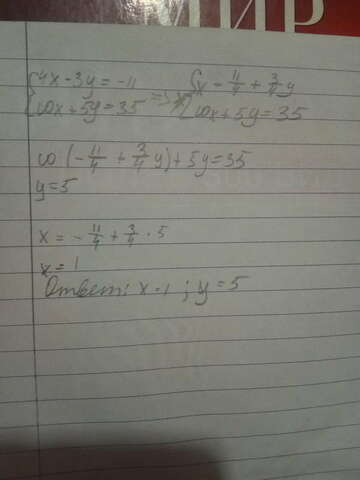 МИР
{4x-3y=-11 => {x - 11/4 + 3/4 y
{10x+5y=35 {10x+5y=35
10(-11/4 + 3/4 y)+5y=35
y=5
x = - 11/4 + 3/4 · 5
x=1
Ответ: x=1 ; y=5